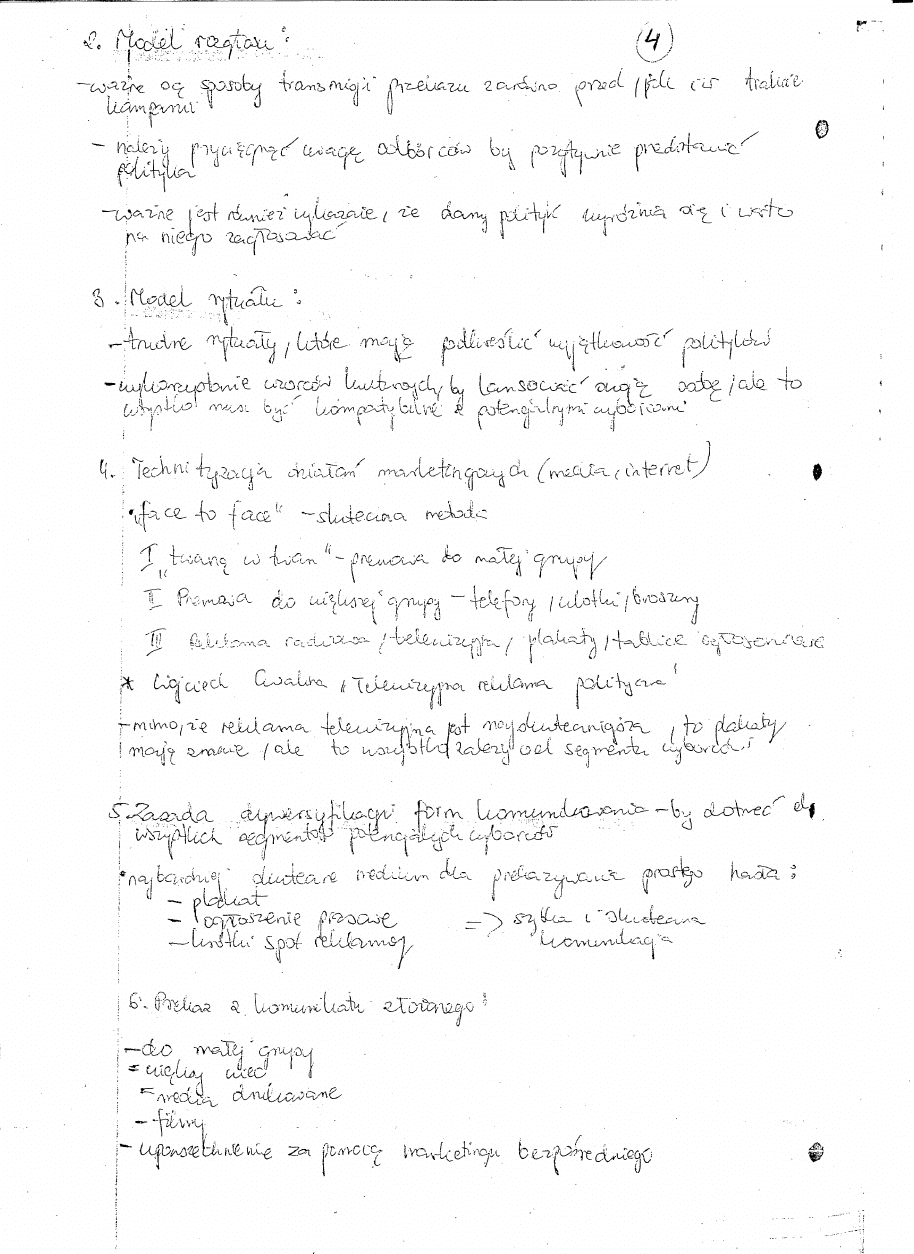 2. Model rozgłosu:
(4)
- ważne są sposoby transmisji przekazu zarówno przed, jak i w trakcie
kampanii
- należy przyciągnąć uwagę odbiorców by pozytywnie przedstawić
polityka
- ważne jest również wykazanie, że dany polityk wyróżnia się i warto
na niego zagłosować
3. Model rytuału:
- trudne rytuały, które mają podkreślić wyjątkowość polityków
- wykorzystanie wzorców kulturowych, by lansować swoją osobę, ale to
wszystko musi być kompatybilne z potencjalnymi wyborcami
4. Technityzacja działań marketingowych (media, internet)
• „face to face" - skuteczna metoda
I „twarzą w twarz" - przemowa do małej grupy
II Przemowa do większej grupy - telefony, ulotki, broszury
III Reklama radiowa, telewizyjna, plakaty, tablice ogłoszeniowe
* Wojciech Cwalina, „Telewizyjna reklama polityczna"
- mimo, że reklama telewizyjna jest najskuteczniejsza, to plakaty
mają znacze, ale to wszystko zależy od segmentu wyborców
5. Zasada dywersyfikacji form komunikowania - by dotrzeć do
wszystkich segmentów potencjalnych wyborców
• najbardziej skuteczne medium dla przekazywania prostego hasła:
- plakat
- ogłoszenie prasowe => szybka i skuteczna
- krótki spot reklamowy komunikacja
6. Przekaz z komunikatu złożonego:
- do małej grupy
- większej wiec
- media drukowane
- filmy
- upowszechnienie za pomocą marketingu bezpośredniego